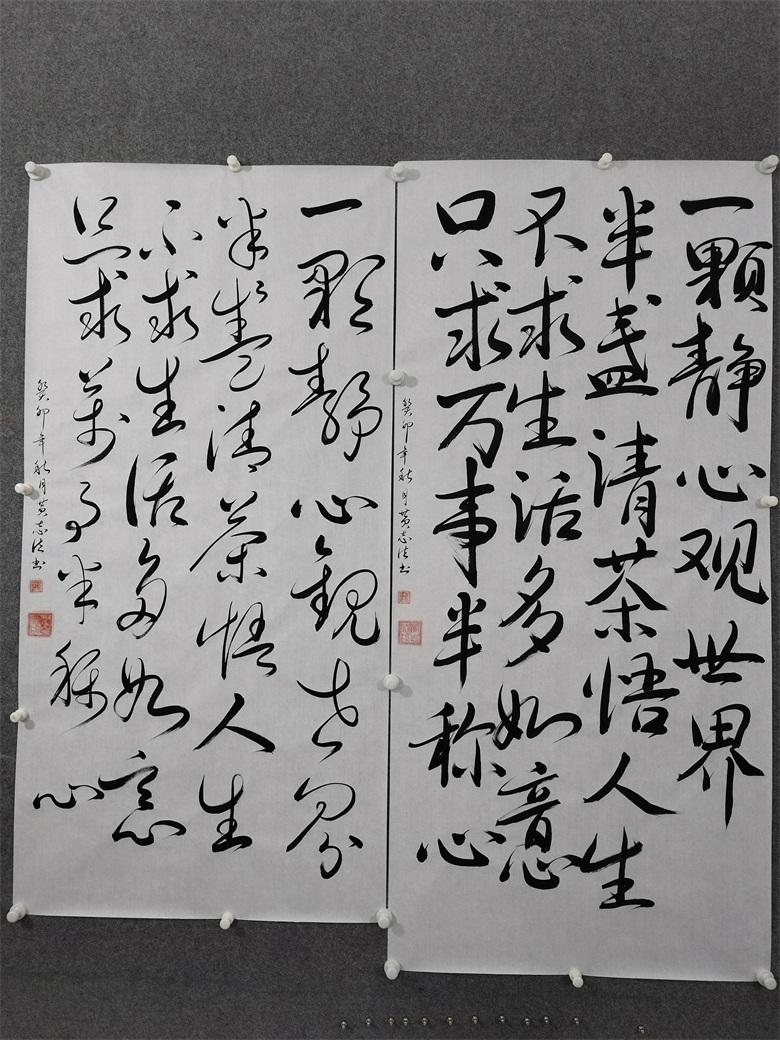 一颗静心观世界
半盏清茶悟人生
不求生活多如意
只求万事半称心
癸卯年秋月黄志法书
一颗静心觀世界
半盏清茶悟人生
不求生活多如意
只求万事半称心
癸卯年秋月黄志法书